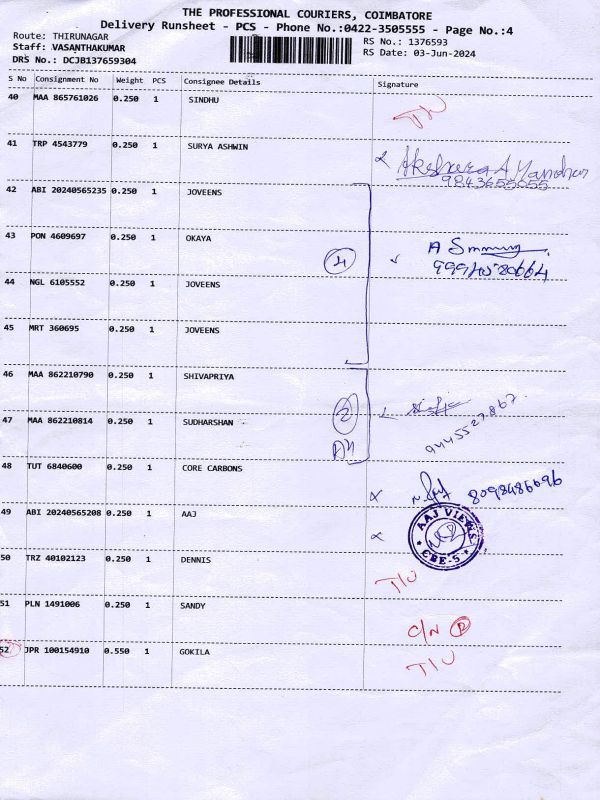 THE PROFESSIONAL COURIERS, COIMBATORE
Delivery Runsheet - PCS - Phone No.:0422-3505555 - Page No.:4
Route: THIRUNAGAR
Staff: VASANTHAKUMAR
DRS No.: DCJB137659304
RS No.: 1376593
RS Date: 03-Jun-2024
S No Consignment No Weight PCS Consignee Details Signature
40 MAA 865761026 0.250 1 SINDHU
41 TRP 4543779 0.250 1 SURYA ASHWIN
9843655055
42 ABI 20240565235 0.250 1 JOVEENS
43 PON 4609697 0.250 1 OKAYA
4
44 NGL 6105552 0.250 1 JOVEENS
45 MRT 360695 0.250 1 JOVEENS
46 MAA 862210790 0.250 1 SHIVAPRIYA
2
47 MAA 862210814 0.250 1 SUDHARSHAN
9445527867
48 TUT 6840600 0.250 1 CORE CARBONS
8098486696
49 ABI 20240565208 0.250 1 AAJ
AAJ VIEWS
CBE-5
50 TRZ 40102123 0.250 1 DENNIS T/U
51 PLN 1491006 0.250 1 SANDY C/N
52 JPR 100154910 0.550 1 GOKILA T/U